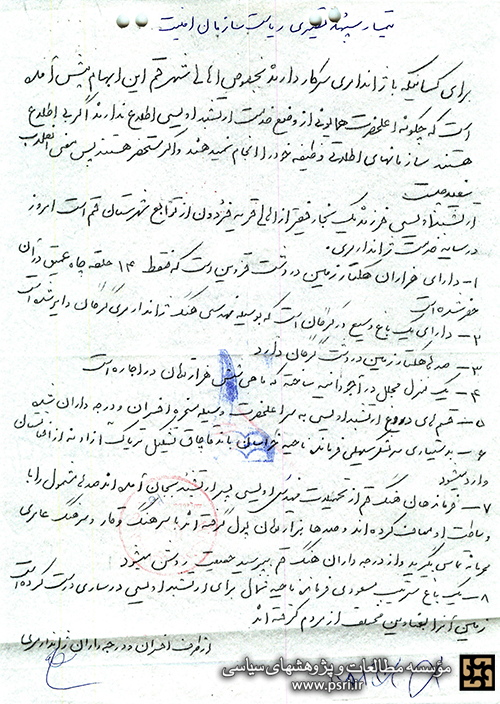 تیمسار سپهبد نصیری ریاست سازمان امنیت
برای کسانیکه با ژاندارمری سرکار دارند بخصوص اهالی شهر قم این ابهام پیش آمده
است که چگونه اعلیحضرت همایونی از وضع خدمت ارتشبد اویسی اطلاع ندارند اگر بی اطلاع
هستند سازمانهای اطلاعاتی وظیفه خود را انجام نمیدهند و اگر مستحضر هستند پس معنی انقلاب
سفید چیست
ارتشبد اویسی فرزند یک نجار فقیر از اهالی قریه فردو از توابع شهرستان قم است امروز
در سایه خدمت ژاندارمری.
۱- دارای هزاران هکتار زمین در دشت قزوین است که فقط ۱۴ حلقه چاه عمیق در آن
حفر شده است
۲- دارای یک باغ وسیع در گرگان است که بوسیله مهندسی هنگ ژاندارمری گرگان دایر شده است
۳- صدها هکتار زمین در دشت گرگان دارد
۴- یک منزل مجلل در آجودانیه ساخته که ماهی شش هزار تومان در اجاره است
۵- قسم های دروغ ارتشبد اویسی به سر اعلیحضرت وسیله مسخره افسران و درجه داران شده
۶- بدستیاری سرتیپ فرمانده ناحیه خراسان باند قاچاق تشکیل تریاک آزادانه از افغانستان
وارد میشود
۷- فرماندهان هنگ قم از تحمیلات اویسی پسر ارتشبد بجان آمده اند صدها مشمول را با
وساطت او معاف کرده اند و صدها هزار تومان پول گرفته اند با سرهنگ وقار و سرهنگ عامری
محرمانه تماس بگیرید و از درجه داران هنگ قم بپرسید حقیقت روشن میشود
۸- یک باغ سرتیپ مسعودی فرمانده ناحیه شمال برای ارتشبد اویسی در ساری درست کرده است
زمین آنرا بعناوین مختلف از مردم گرفته اند
از طرف افسران و درجه داران ژاندارمری
مؤسسه مطالعات و پژوهشهای سیاسی
www.psri.ir